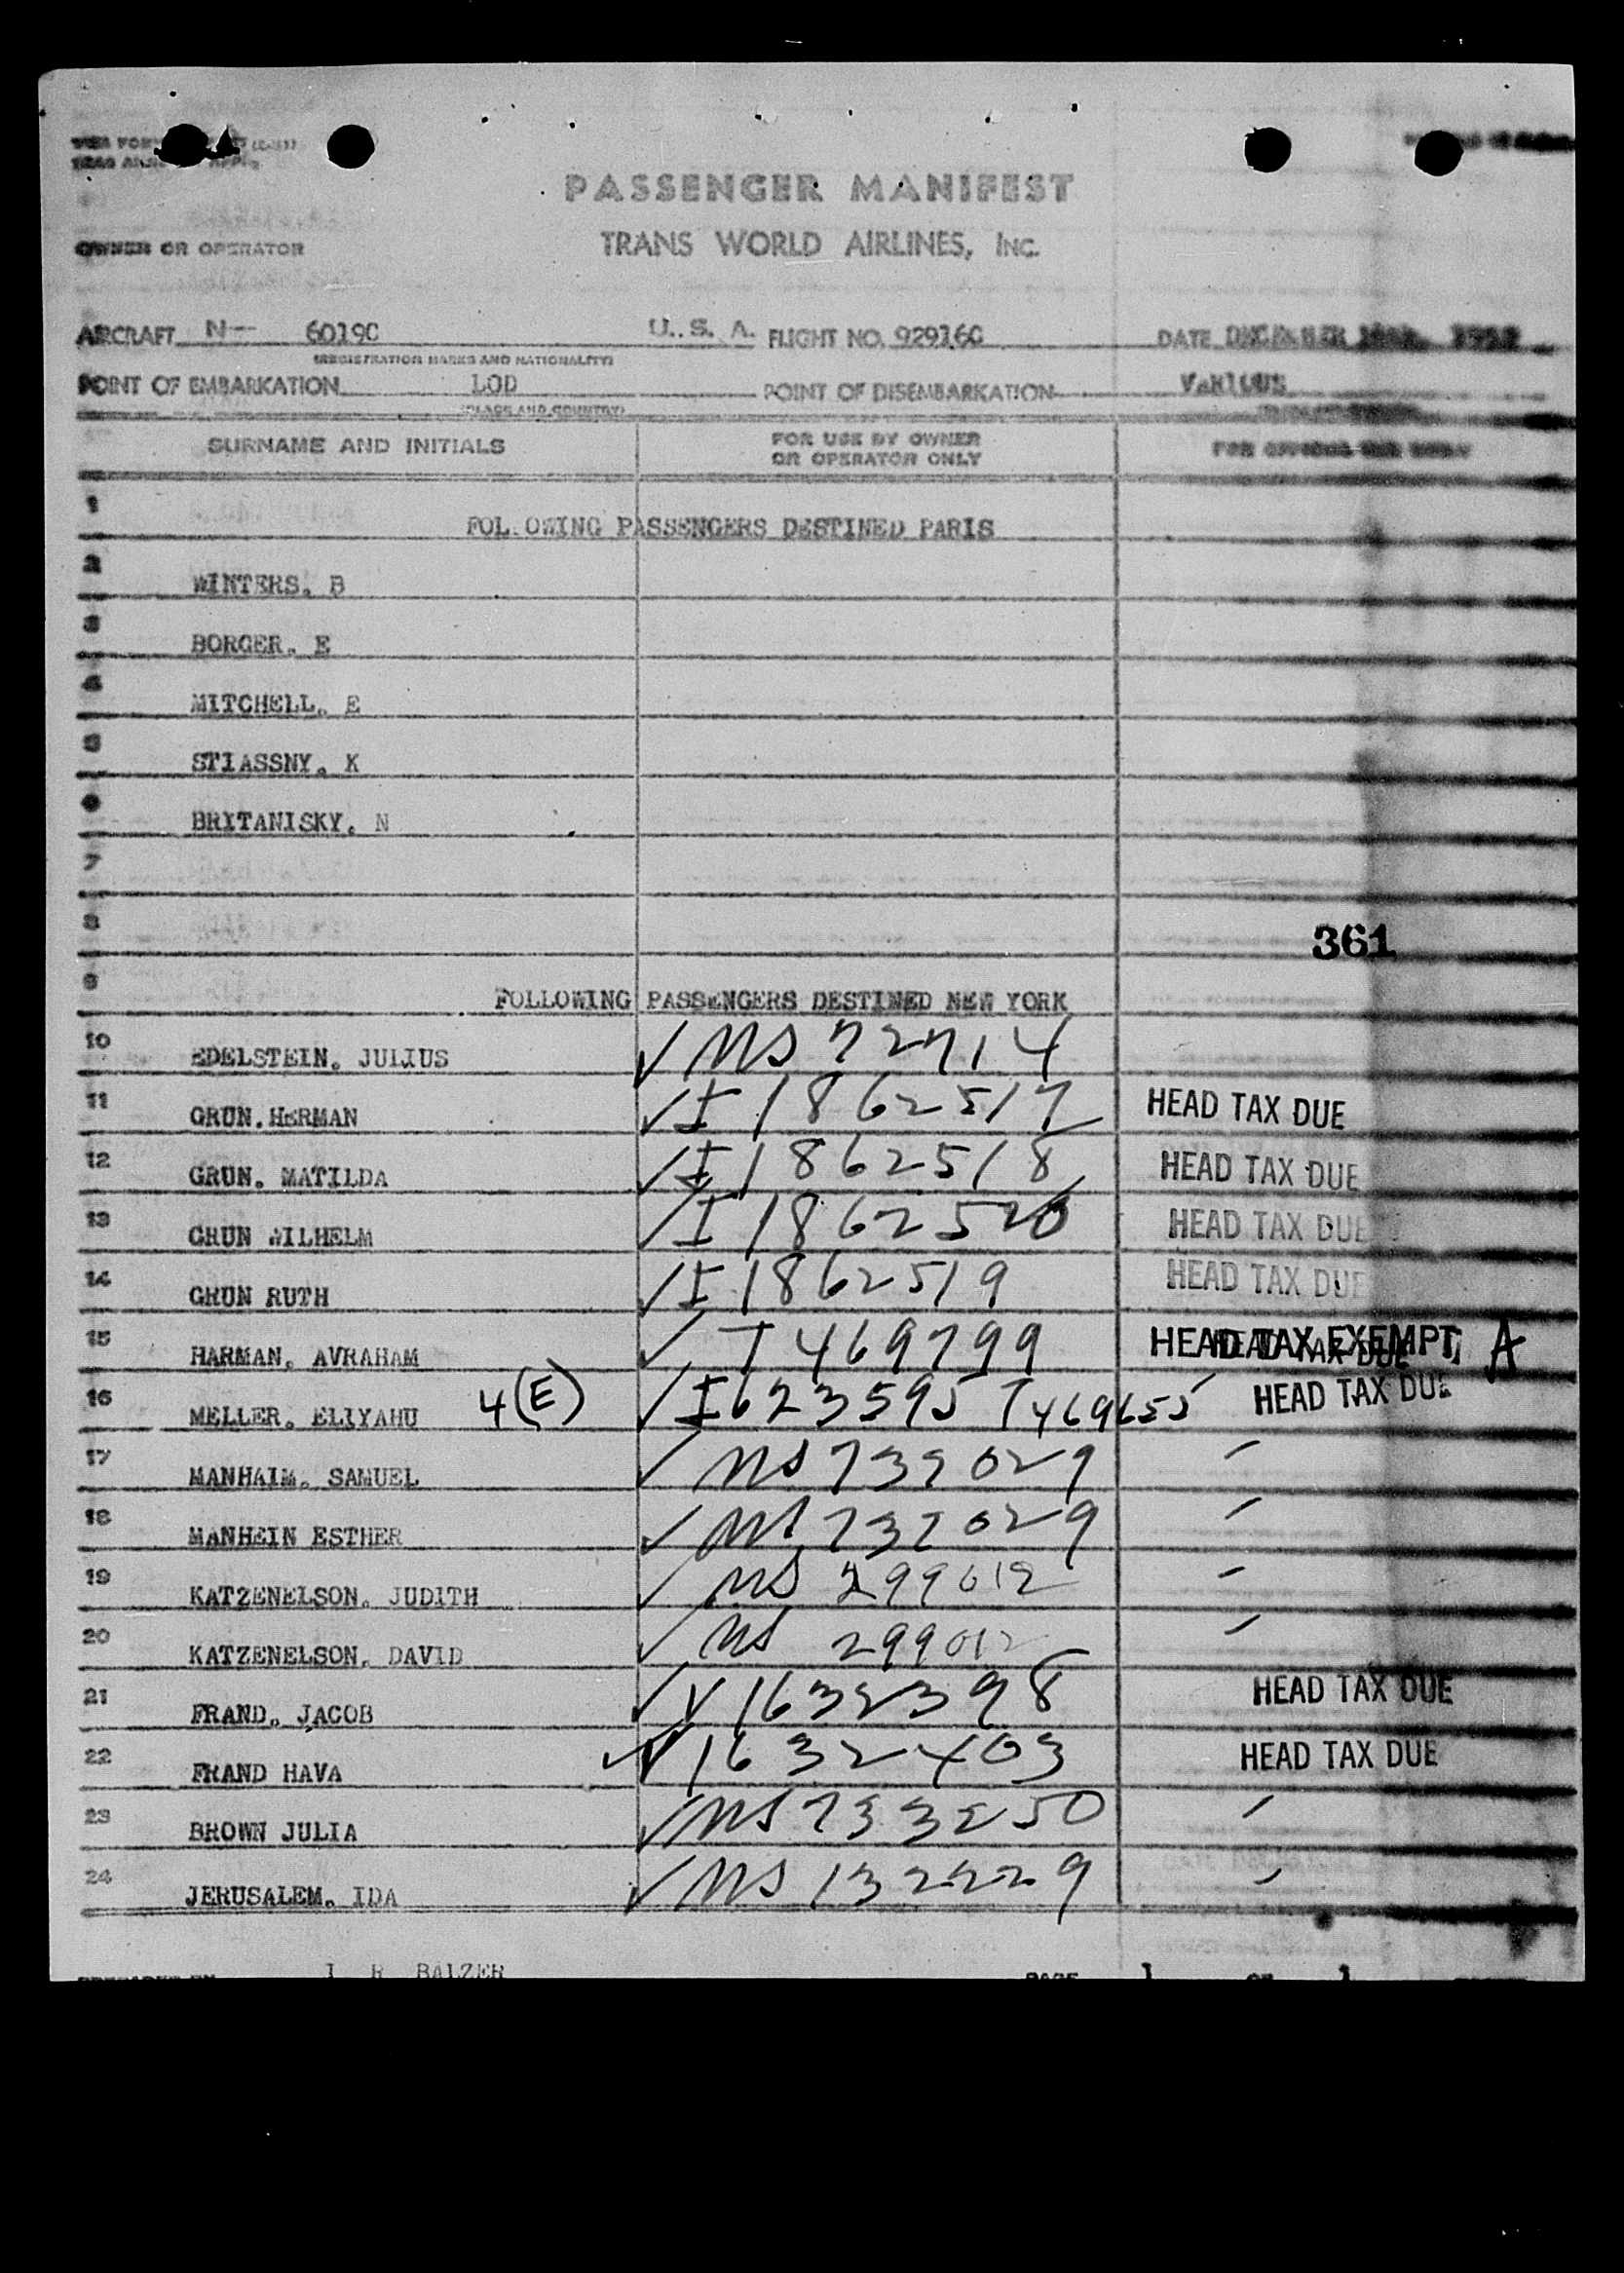 PASSENGER MANIFEST
OWNER OR OPERATOR TRANS WORLD AIRLINES, INC.
AIRCRAFT N— 6019C U. S. A. FLIGHT NO. 92916C DATE DECEMBER
(REGISTRATION MARKS AND NATIONALITY)
POINT OF EMBARKATION LOD POINT OF DISEMBARKATION VARIOUS
(PLACE AND COUNTRY)
SURNAME AND INITIALS FOR USE BY OWNER OR OPERATOR ONLY FOR OFFICIAL USE ONLY
1 FOL OWING PASSENGERS DESTINED PARIS
2 WINTERS. B
3 BORGER. E
4 MITCHELL. E
5 STIASSNY. K
6 BRITANISKY. N
7
8 361
9 FOLLOWING PASSENGERS DESTINED NEW YORK
10 EDELSTEIN. JULIUS ✓ NS 72714
11 GRUN.HERMAN ✓ I 1862517 HEAD TAX DUE
12 GRUN. MATILDA ✓ I 1862518 HEAD TAX DUE
13 GRUN WILHELM ✓ I 1862520 HEAD TAX DUE
14 GRUN RUTH ✓ I 1862519 HEAD TAX DUE
15 HARMAN. AVRAHAM ✓ T 469799 HEAD TAX EXEMPT HEAD TAX DUE A
16 MELLER. ELIYAHU 4(E) ✓ I623595 T469655 HEAD TAX DUE
17 MANHAIM. SAMUEL ✓ NS 737029
18 MANHEIN ESTHER ✓ NS 737029
19 KATZENELSON. JUDITH ✓ NS 299012
20 KATZENELSON. DAVID ✓ NS 299012
21 FRAND. JACOB ✓ V 1632398 HEAD TAX DUE
22 FRAND HAVA ✓ V 1632403 HEAD TAX DUE
23 BROWN JULIA ✓ NS 733250
24 JERUSALEM. IDA ✓ NS 132229
I R BALZER PAGE 1 OF 1